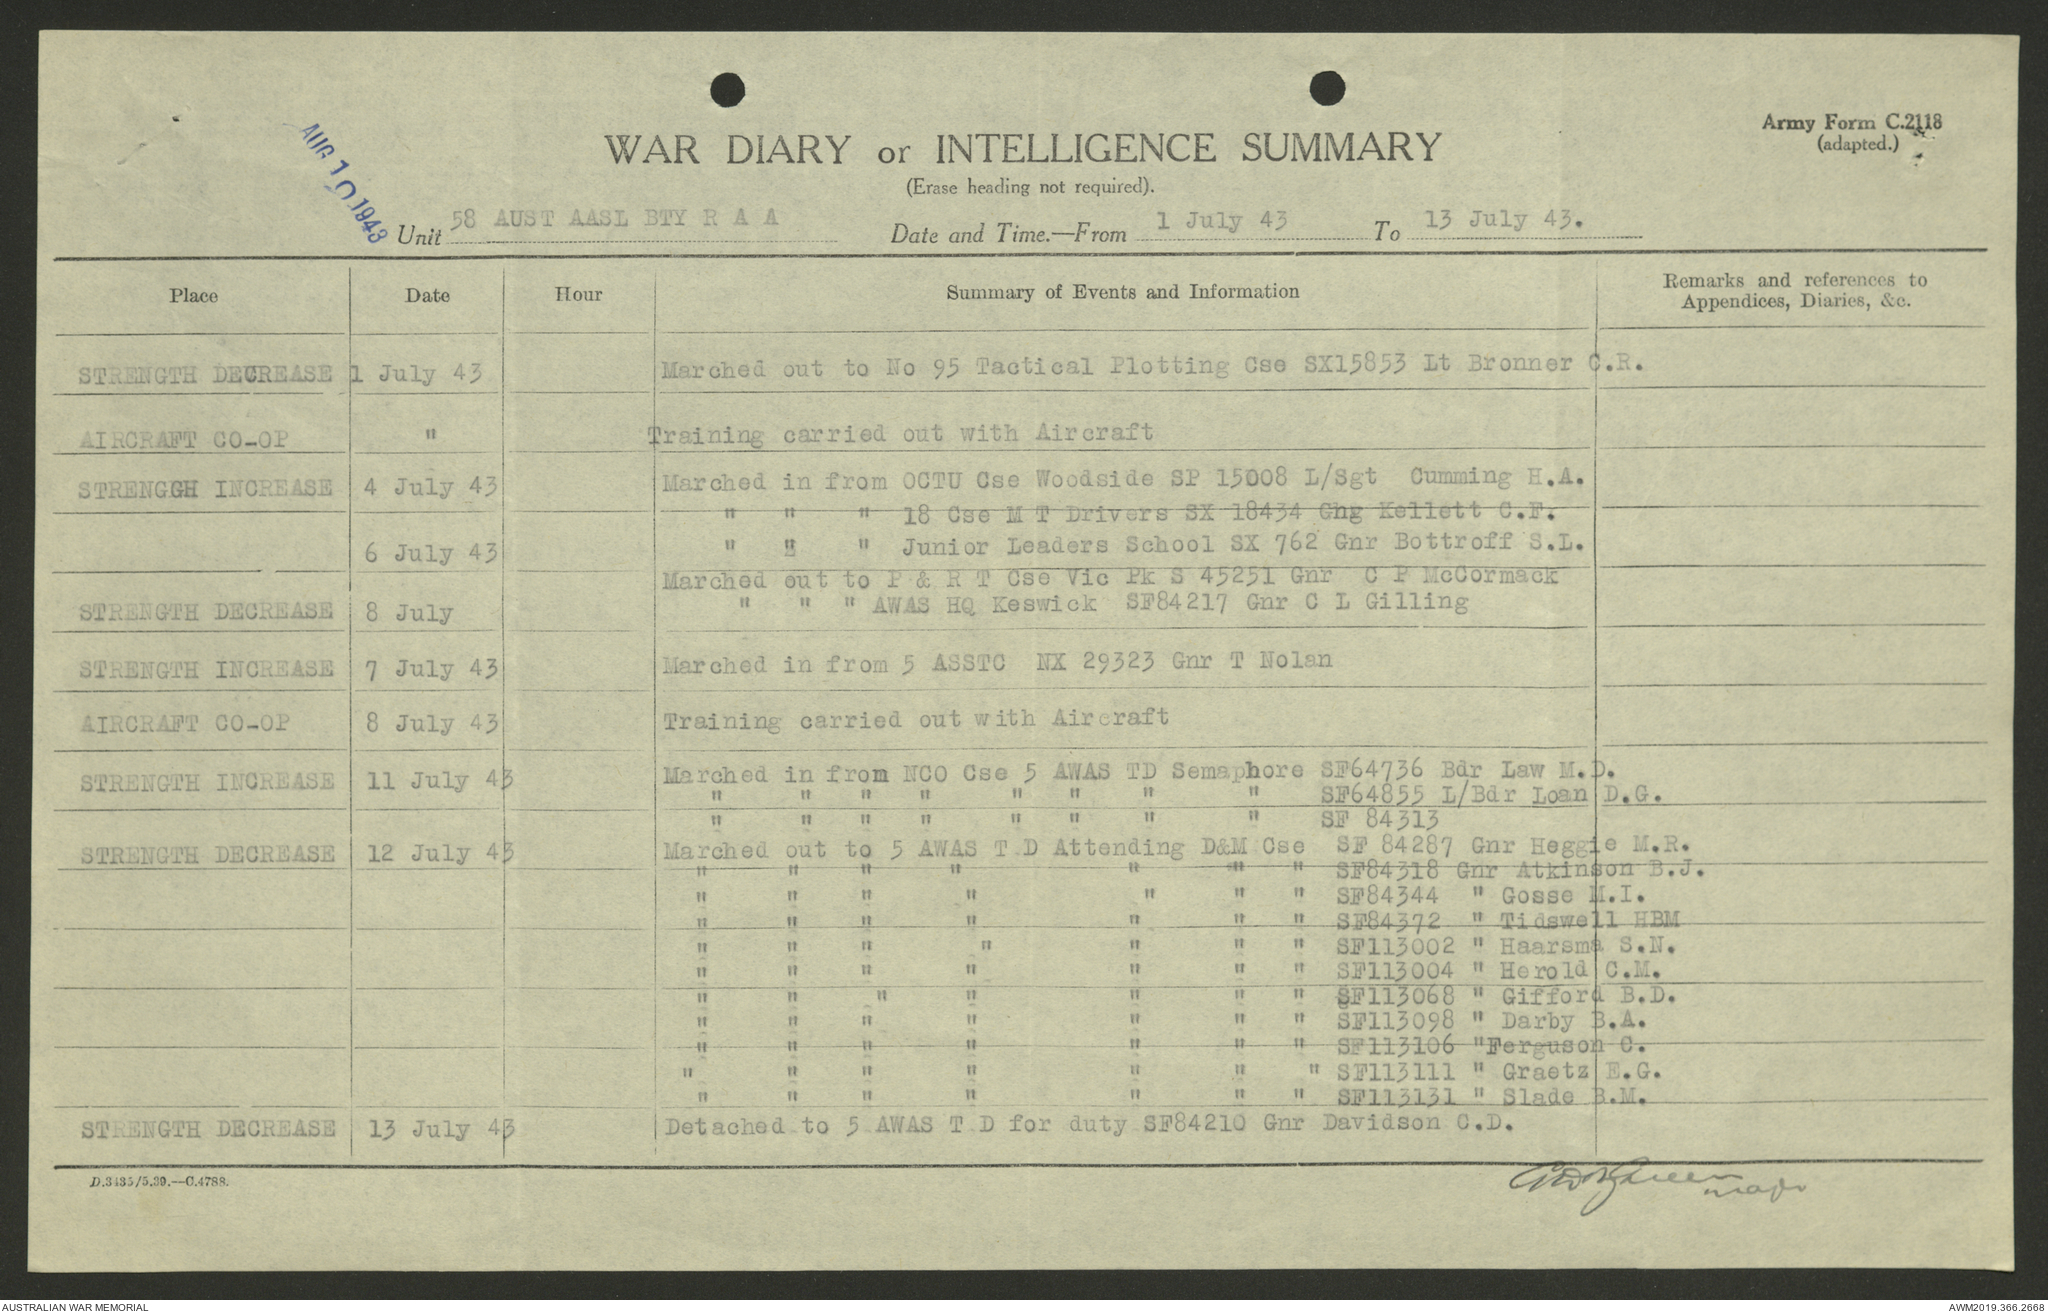 AUG 10 1943
Army Form C.2118
(adapted.)
WAR DIARY or INTELLIGENCE SUMMARY
(Erase heading not required).
Unit 58 AUST AASL BTY R A A Date and Time.—From 1 July 43 To 13 July 43.
Place Date Hour Summary of Events and Information Remarks and references to
Appendices, Diaries, &c.
STRENGTH DECREASE 1 July 43 Marched out to No 95 Tactical Plotting Cse SX15853 Lt Bronner C.R.
AIRCRAFT CO-OP " Training carried out with Aircraft
STRENGGH INCREASE 4 July 43 Marched in from OCTU Cse Woodside SP 15008 L/Sgt Cumming H.A.
" " " 18 Cse M T Drivers SX 18434 Ghg Kellett C.F.
6 July 43 " " " Junior Leaders School SX 762 Gnr Bottroff S.L.
Marched out to P & R T Cse Vic Pk S 45251 Gnr C P McCormack
STRENGTH DECREASE 8 July " " " AWAS HQ Keswick SF84217 Gnr C L Gilling
STRENGTH INCREASE 7 July 43 Marched in from 5 ASSTC NX 29323 Gnr T Nolan
AIRCRAFT CO-OP 8 July 43 Training carried out with Aircraft
STRENGTH INCREASE 11 July 43 Marched in from NCO Cse 5 AWAS TD Semaphore SF64736 Bdr Law M.D.
" " " " " " " " SF64855 L/Bdr Loan D.G.
" " " " " " " " SF 84313
STRENGTH DECREASE 12 July 43 Marched out to 5 AWAS T D Attending D&M Cse SF 84287 Gnr Heggie M.R.
" " " " " " " SF84318 Gnr Atkinson B.J.
" " " " " " " SF84344 " Gosse M.I.
" " " " " " " SF84372 " Tidswell HBM
" " " " " " " SF113002 " Haarsma S.N.
" " " " " " " SF113004 " Herold C.M.
" " " " " " " SF113068 " Gifford B.D.
" " " " " " " SF113098 " Darby B.A.
" " " " " " " SF113106 "Ferguson C.
" " " " " " " SF113111 " Graetz E.G.
" " " " " " " SF113131 " Slade B.M.
STRENGTH DECREASE 13 July 43 Detached to 5 AWAS T D for duty SF84210 Gnr Davidson C.D.
D.3435/5.39.—C.4788.
Major
AUSTRALIAN WAR MEMORIAL AWM2019.366.2668